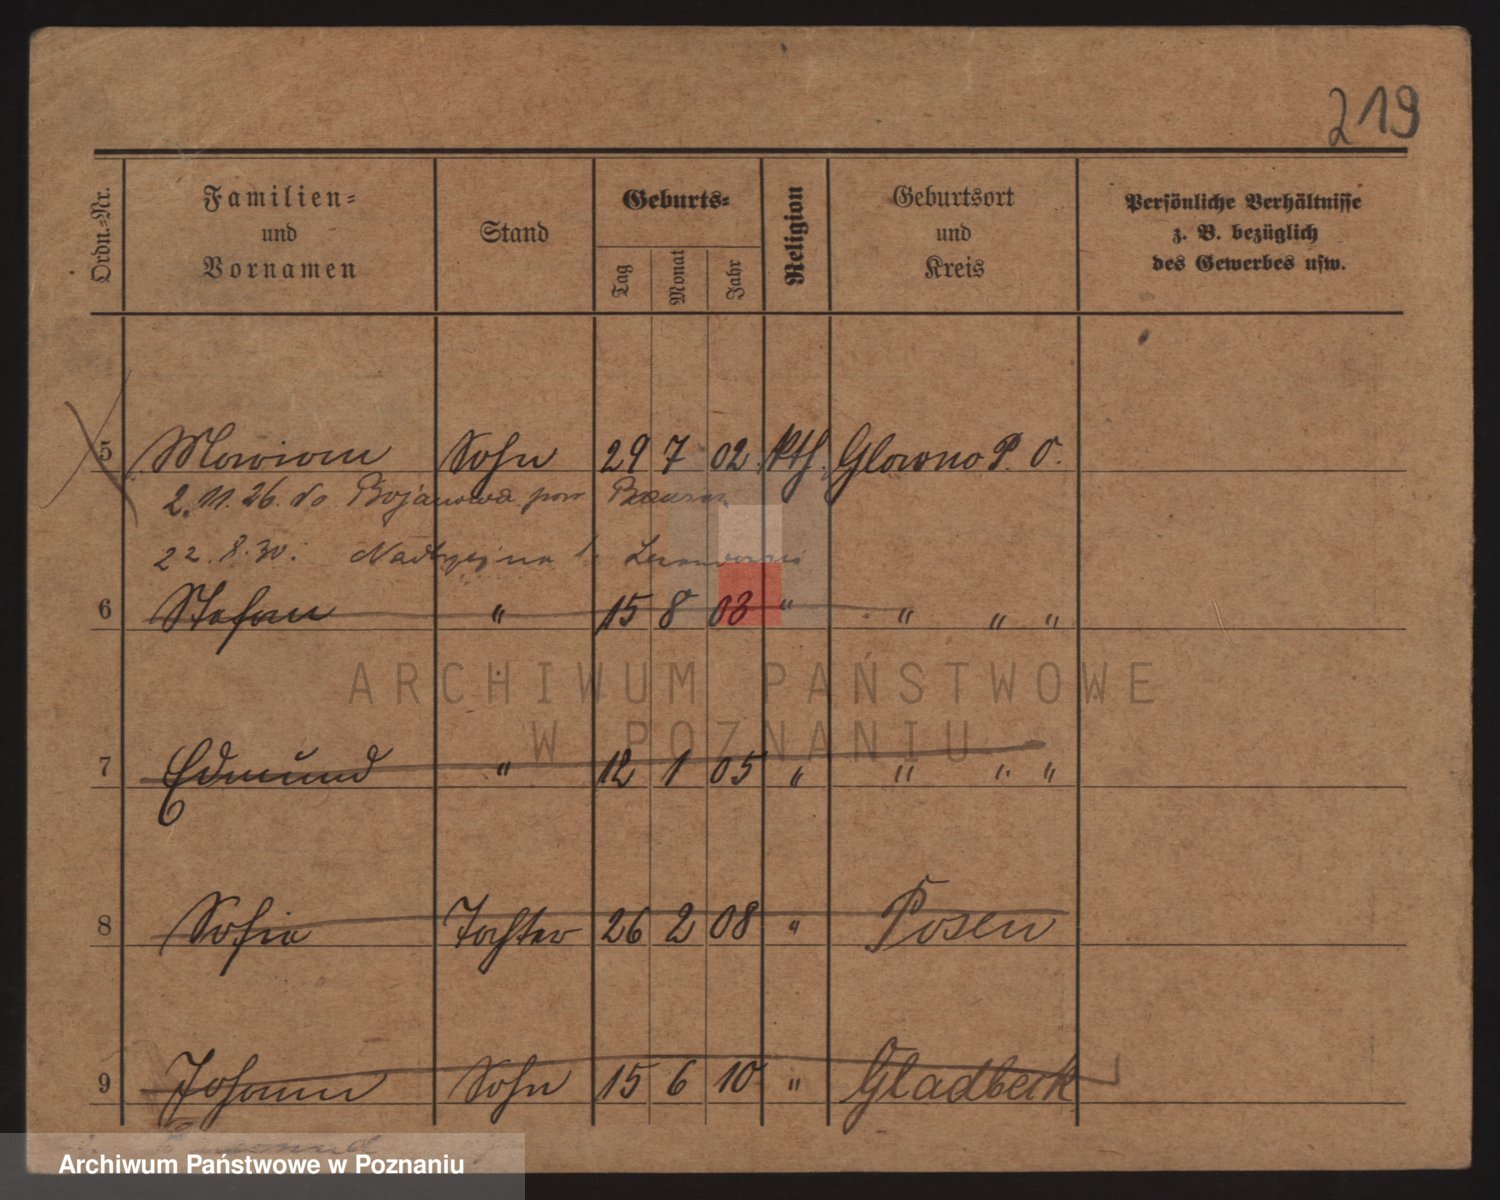 219
Ordn.=Nr.
Familien=
und
Vornamen
Stand
Geburts=
Tag
Monat
Jahr
Religion
Geburtsort
und
Kreis
Persönliche Verhältnisse
z. B. bezüglich
des Gewerbes usw.
5 Marian Sohn 29 7 02 kth. Glowno P. O.
2. 11. 26. do Bojanowa pow
22. 8. 30.
6 Stefan " 15 8 03 " " " "
ARCHIWUM PAŃSTWOWE
W POZNANIU
7 Edmund " 12 1 05 " " " "
8 Sofie Tochter 26 2 08 " Posen
9 Johann Sohn 15 6 10 " Gladbeck
Archiwum Państwowe w Poznaniu